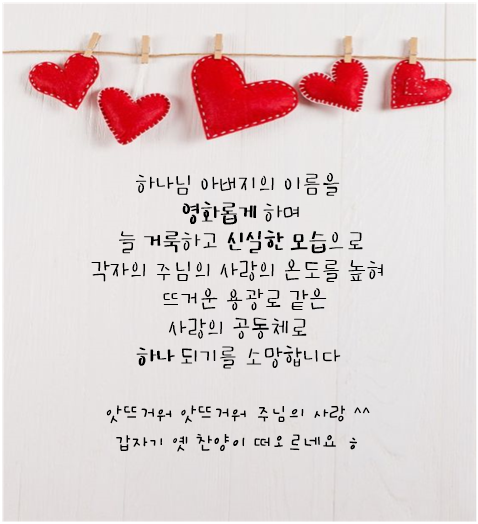 하나님 아버지의 이름을
영화롭게 하며
늘 거룩하고 신실한 모습으로
각자의 주님의 사랑의 온도를 높혀
뜨거운 용광로 같은
사랑의 공동체로
하나 되기를 소망합니다
앗뜨거워 앗뜨거워 주님의 사랑 ^^
갑자기 옛 찬양이 떠오르네요 ㅎ